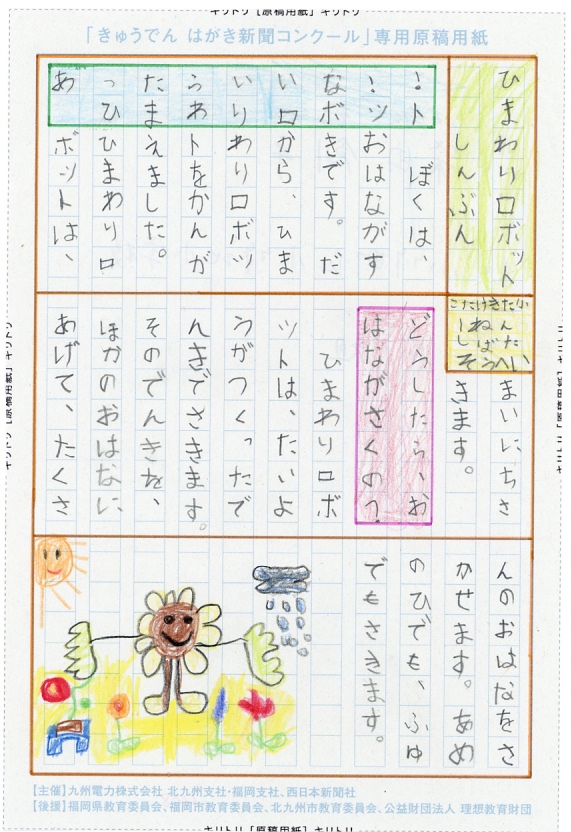 キリトリ【原稿用紙】キリトリ
「きゅうでん はがき新聞コンクール」専用原稿用紙
ひまわりロボット
しんぶん
こたけきた小
1ねん
しばた
そうへい
あったらいいな!!
ひまわりロボット
ぼくは、
おはながす
きです。だ
から、ひま
わりロボッ
トをかんが
えました。
ひまわりロ
ボットは、
まいにちさ
きます。
どうしたら、お
はながさくの?
ひまわりロボ
ットは、たいよ
うがつくったで
んきでさきます。
そのでんきを、
ほかのおはなに
あげて、たくさ
んのおはなをさ
かせます。あめ
のひでも、ふゆ
でもさきます。
【主催】九州電力株式会社 北九州支社・福岡支社、西日本新聞社
【後援】福岡県教育委員会、福岡市教育委員会、北九州市教育委員会、公益財団法人 理想教育財団
キリトリ【原稿用紙】キリトリ